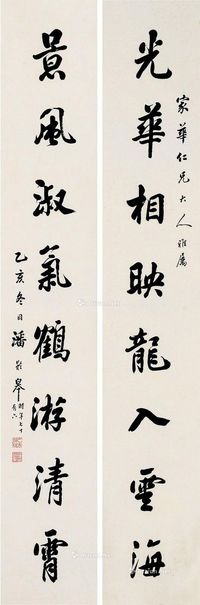 光華相映龍入雲海
家華仁兄大人雅屬
景風淑氣鶴游清霄
乙亥冬日潘齡皋時年七十有六